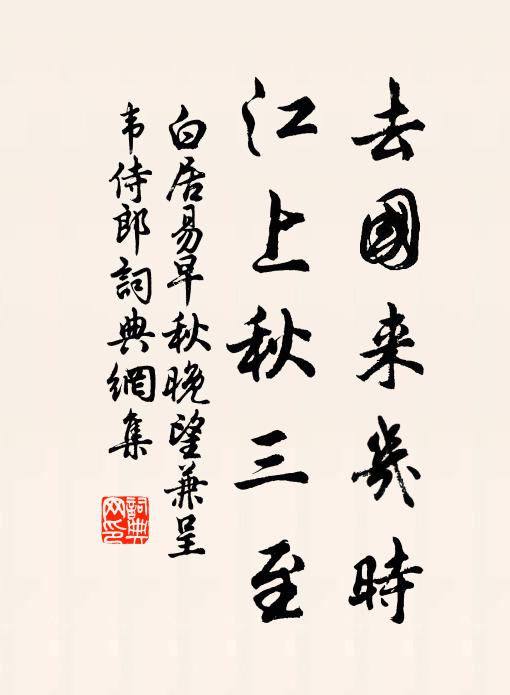 去國来幾時
江上秋三至
白居易早秋晚望兼呈
韦侍郎詞典網集
詞典網印